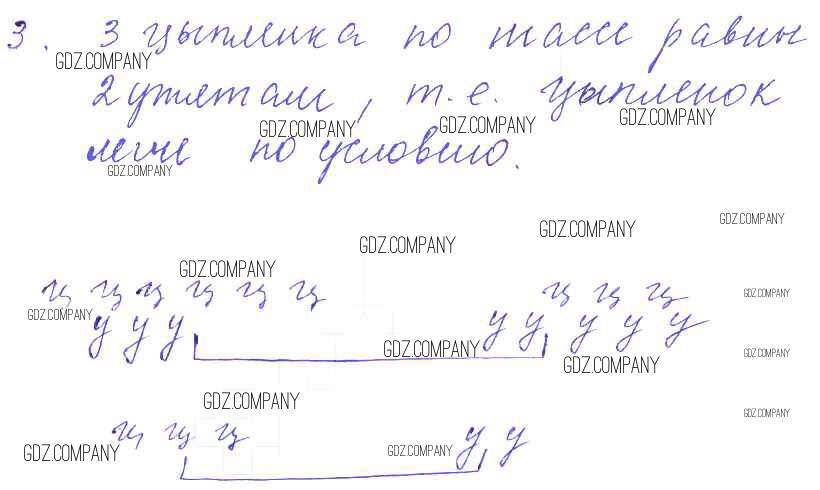 3. 3 цыпленка по массе равны
GDZ.COMPANY
2 утятам, т.е. цыпленок
GDZ.COMPANY GDZ.COMPANY GDZ.COMPANY
легче по условию.
GDZ.COMPANY
GDZ.COMPANY
GDZ.COMPANY
GDZ.COMPANY
GDZ.COMPANY
ц ц ц ц ц ц ц ц ц
GDZ.COMPANY GDZ.COMPANY
у у у у у у у у
GDZ.COMPANY GDZ.COMPANY
GDZ.COMPANY
GDZ.COMPANY
GDZ.COMPANY
ц ц ц у у
GDZ.COMPANY GDZ.COMPANY